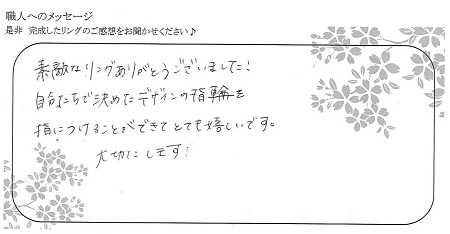 職人へのメッセージ
是非 完成したリングのご感想をお聞かせください♪
素敵なリングありがとうございました!
自分たちで決めたデザインの指輪を
指につけることができてとても嬉しいです。
大切にします!